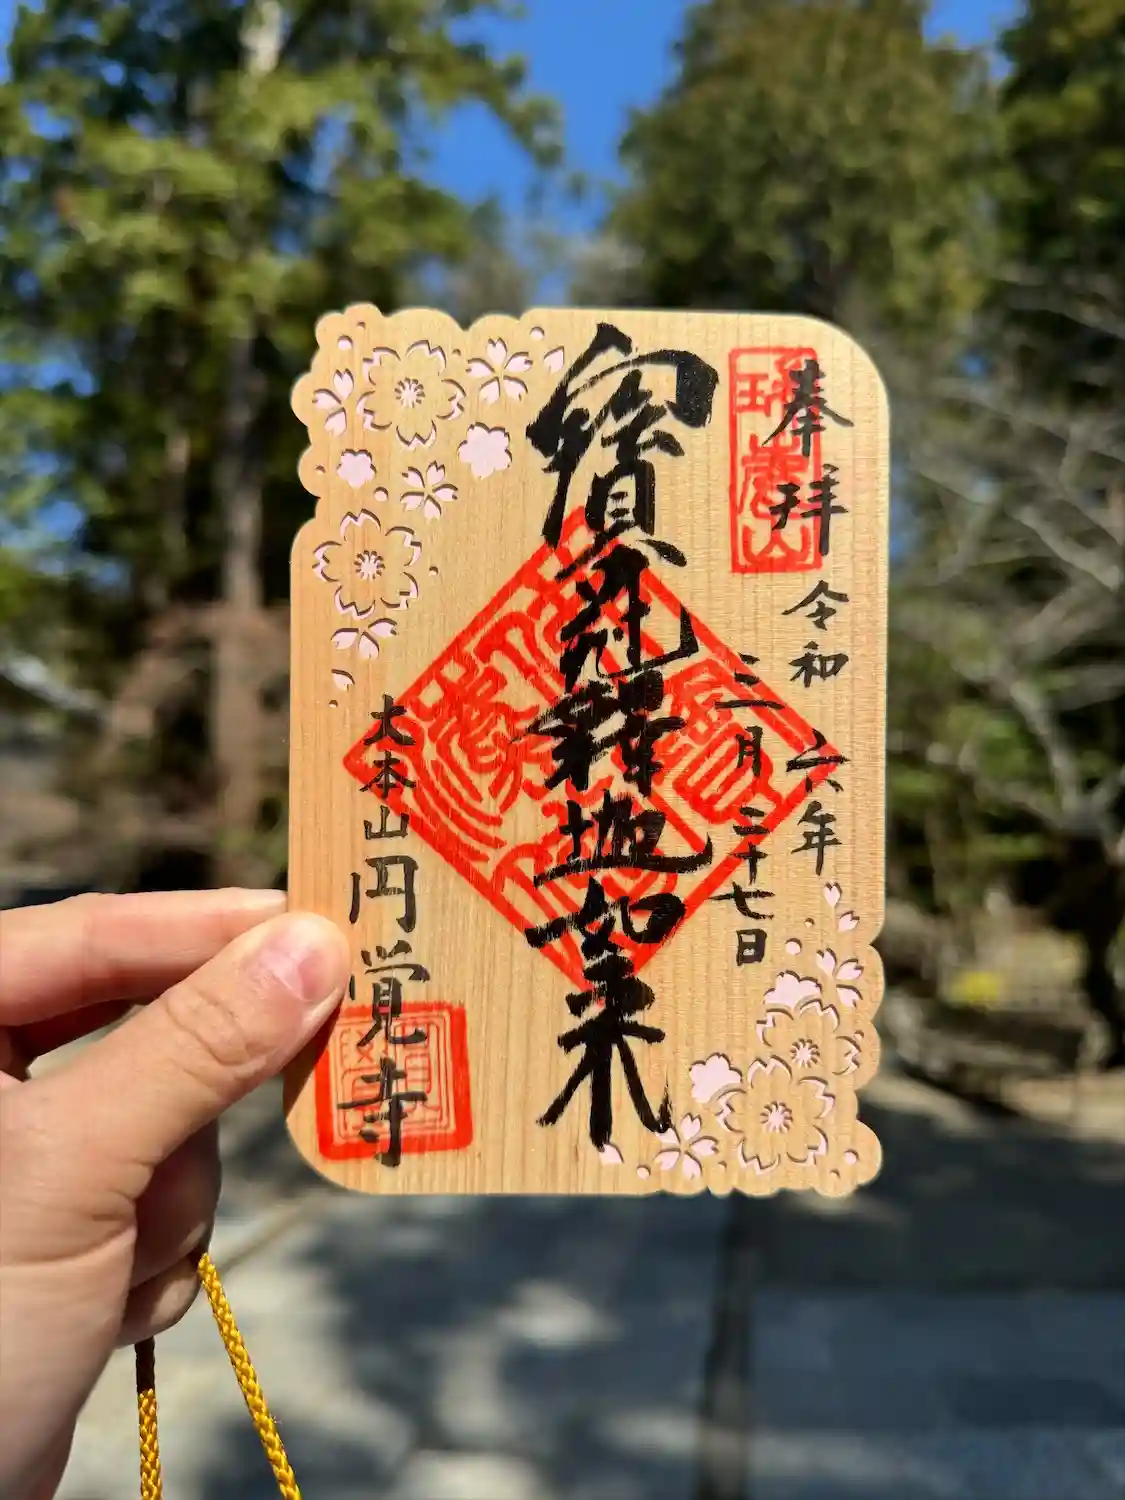 奉拝
瑞鹿山
令和六年
三月二十七日
寳冠釋迦如来
大本山円覚寺